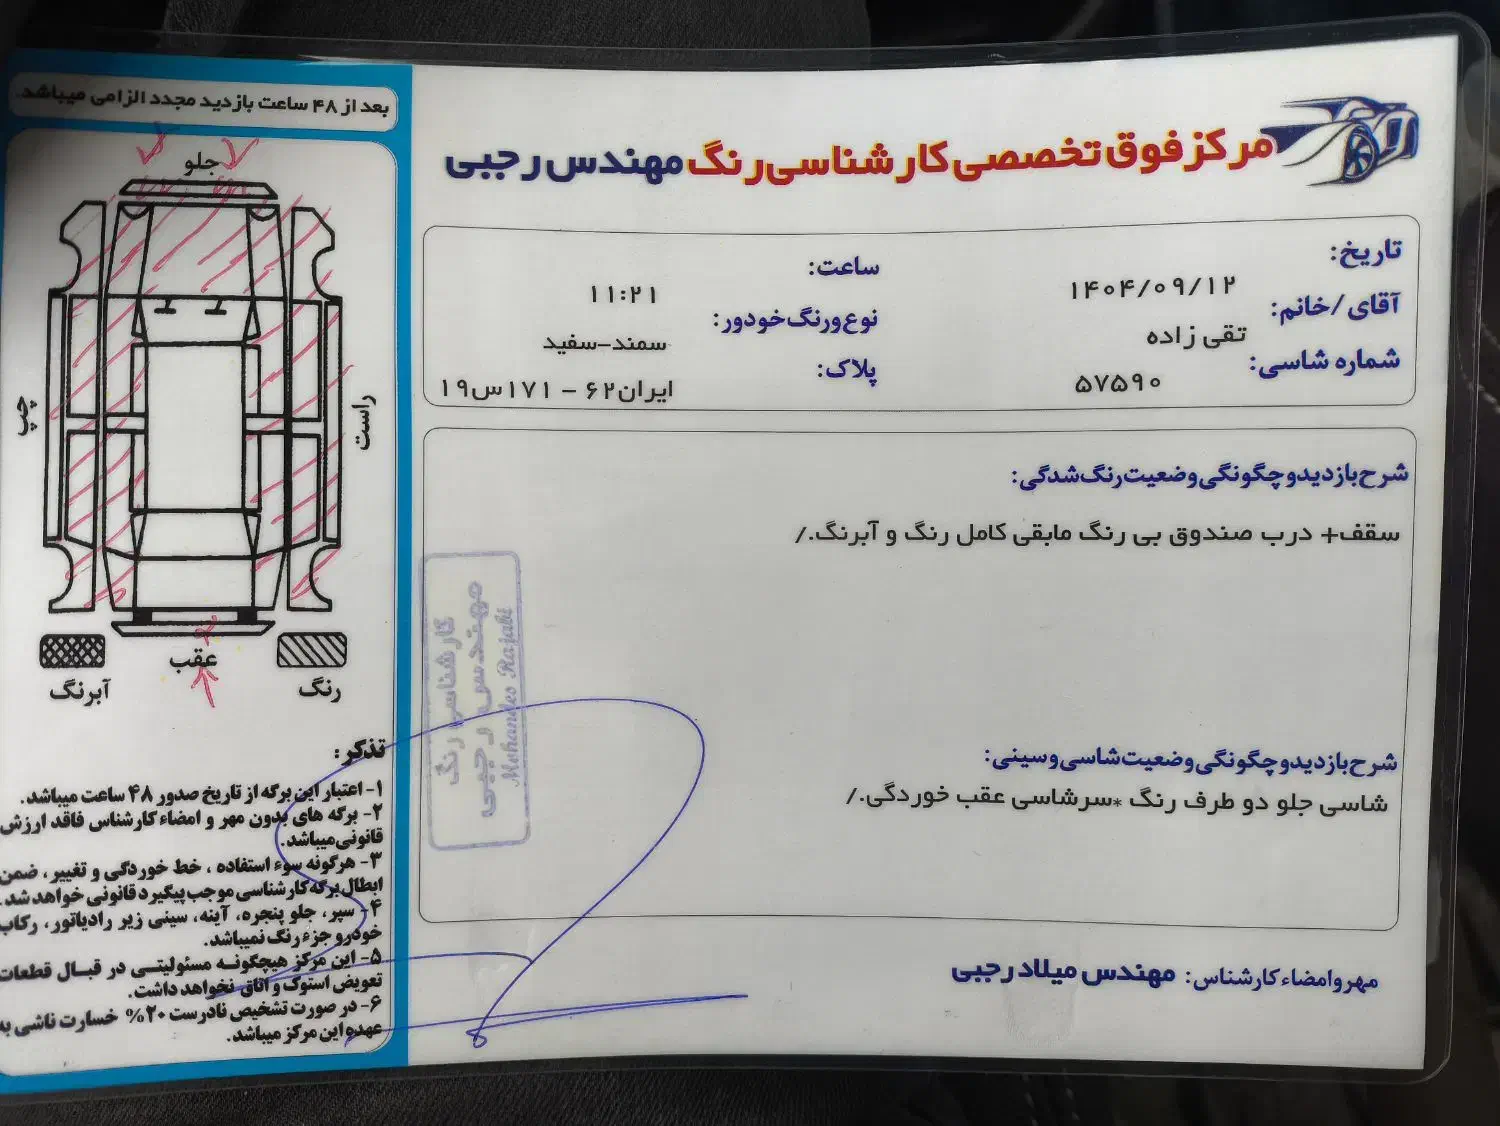 مرکز فوق تخصصی کارشناسی رنگ مهندس رجبی
تاریخ: ۱۴۰۴/۰۹/۱۲
ساعت: ۱۱:۲۱
آقای/خانم: تقی زاده
نوع و رنگ خودور: سمند-سفید
شماره شاسی: ۵۷۵۹۰
پلاک: ایران۶۲ - ۱۷۱س۱۹
شرح بازدید و چگونگی وضعیت رنگ شدگی:
سقف+ درب صندوق بی رنگ مابقی کامل رنگ و آبرنگ./
شرح بازدید و چگونگی وضعیت شاسی و سینی:
شاسی جلو دو طرف رنگ *سرشاسی عقب خوردگی./
مهر و امضاء کارشناس: مهندس میلاد رجبی
کارشناسی رنگ
مهندس رجبی
Mohandes Rajabi
بعد از ۴۸ ساعت بازدید مجدد الزامی میباشد.
جلو
چپ
راست
عقب
آبرنگ
رنگ
تذکر:
۱- اعتبار این برگه از تاریخ صدور ۴۸ ساعت میباشد.
۲- برگه های بدون مهر و امضاء کارشناس فاقد ارزش
قانونی میباشد.
۳- هرگونه سوء استفاده ، خط خوردگی و تغییر، ضمن
ابطال برگه کارشناسی موجب پیگیرد قانونی خواهد شد.
۴- سپر، جلو پنجره، آینه، سینی زیر رادیاتور، رکاب
خودرو جزء رنگ نمیباشد.
۵- این مرکز هیچگونه مسئولیتی در قبال قطعات
تعویض استوک و اتاق نخواهد داشت.
۶- در صورت تشخیص نادرست ۲۰% خسارت ناشی به
عهده این مرکز میباشد.